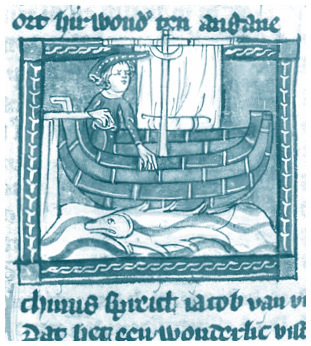 ort hir wond' ten angane
chinus spreict iacob van vi
Dat het een wonderlic visc